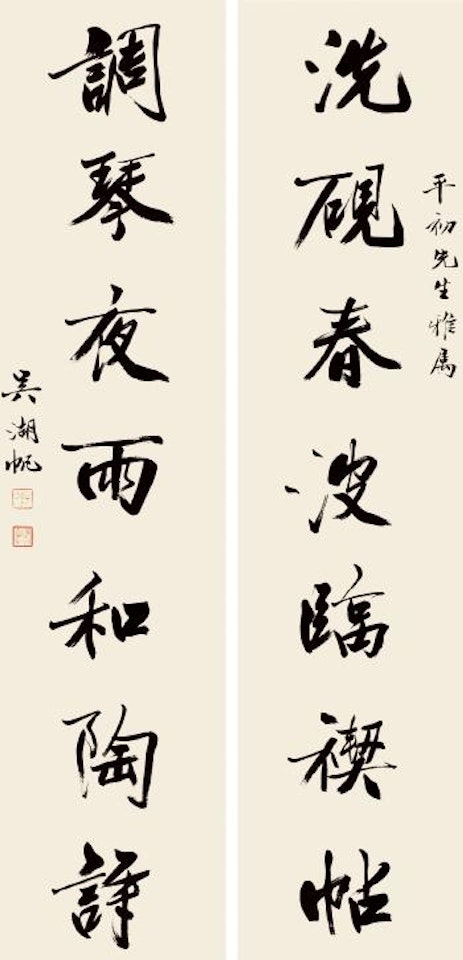 平初先生雅属
洗硯春波臨禊帖
調琴夜雨和陶詩
吴湖帆